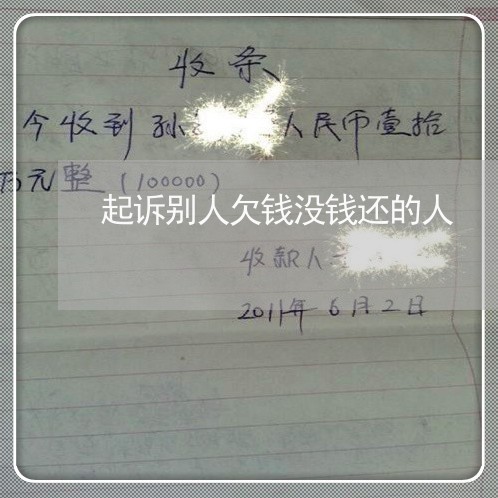 收条
今收到孙 人民币壹拾
万元整(100000)
起诉别人欠钱没钱还的人
收款人
2011年6月2日